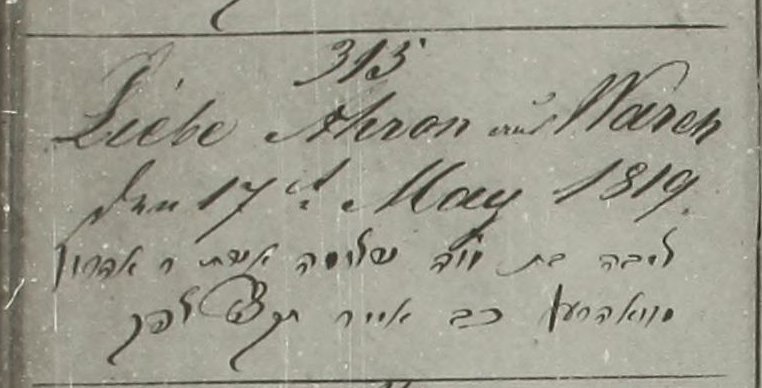 315
Liebe Ahron aus Waren
den 17t May 1819.
ליבה בת שלומה אשת ר אהרון
מוואהרען כב אייר תקעט לפק